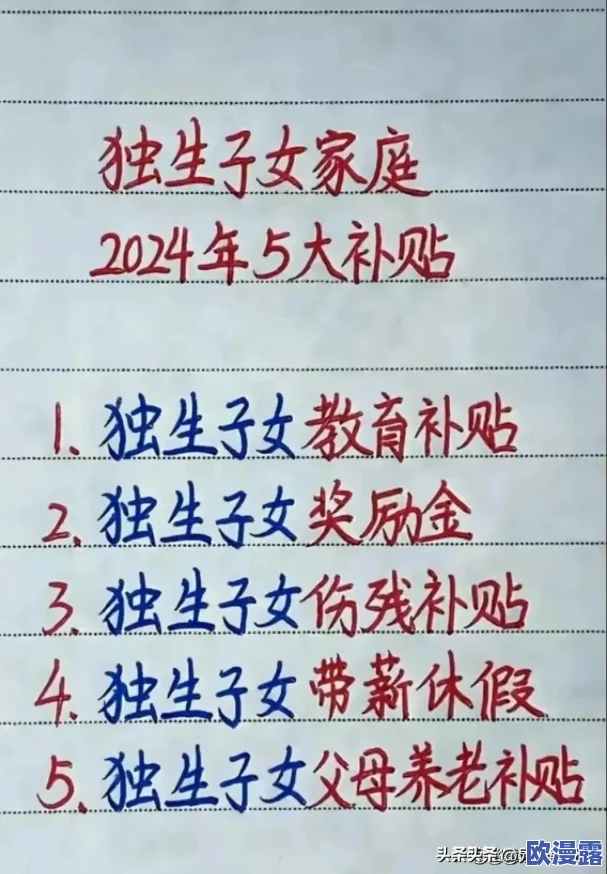 独生子女家庭
2024年5大补贴
1. 独生子女教育补贴
2. 独生子女奖励金
3. 独生子女伤残补贴
4. 独生子女带薪休假
5. 独生子女父母养老补贴
头条
欧漫露